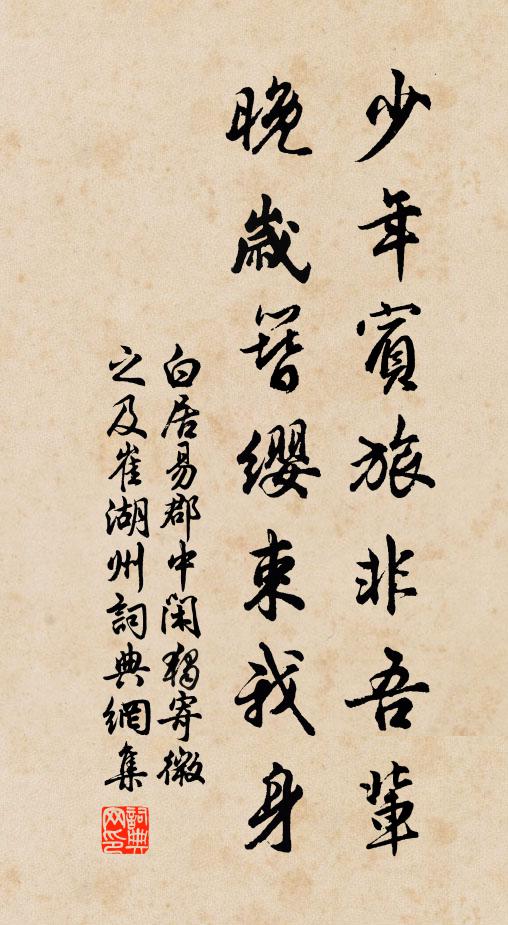 少年賓旅非吾輩
晚歲簪纓束我身
白居易郡中閑獨寄微
之及崔湖州詞典網集
詞典网印